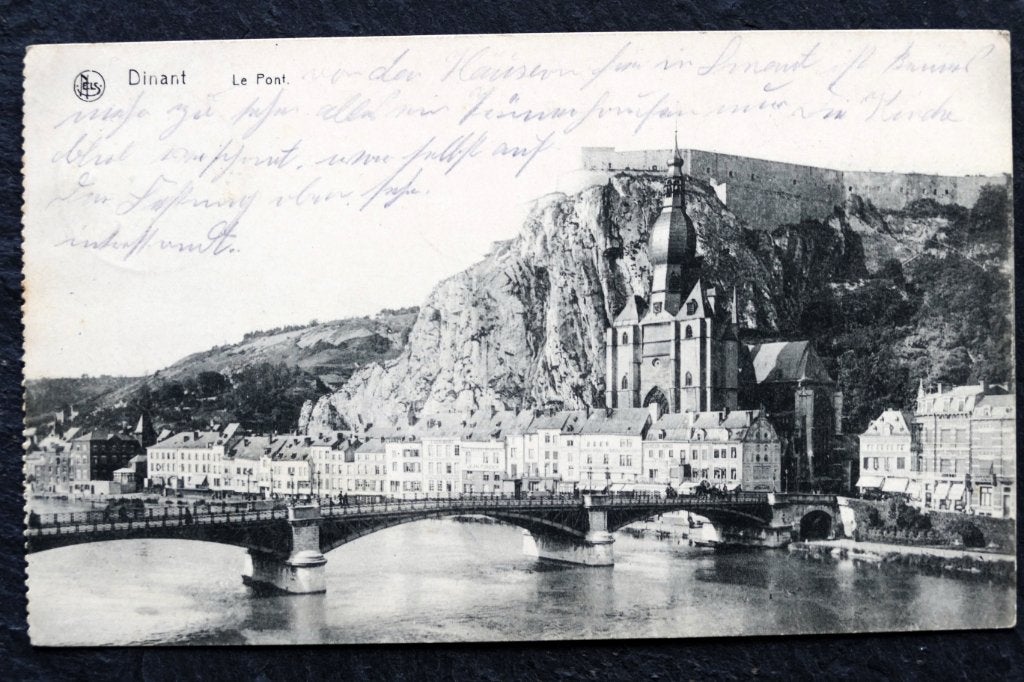 NELS
Dinant Le Pont.
von den Häusern hier in Dinant ist keines
mehr zu sehn alles ein Trümmerhaufen nur die Kirche
blieb verschont. war selbst auf
der Festung oben. sehr
interessant.